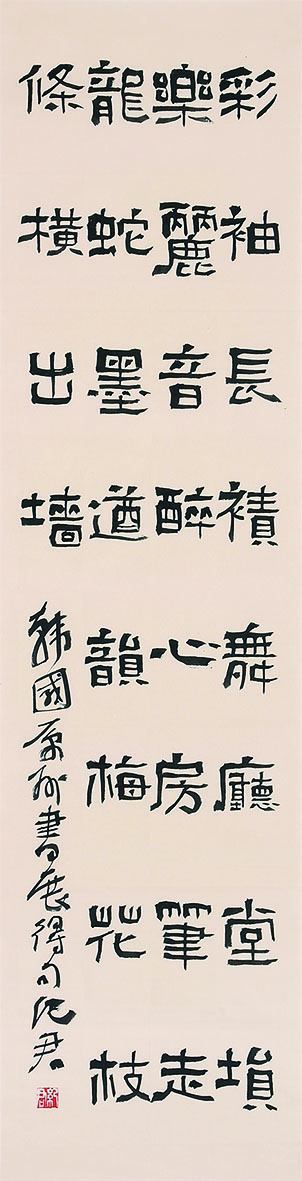 彩袖長襀舞廳堂塤
樂麗音醉心房筆走
龍蛇墨遒韻梅花枝
條橫出墻
韓國原州書展得句紀君